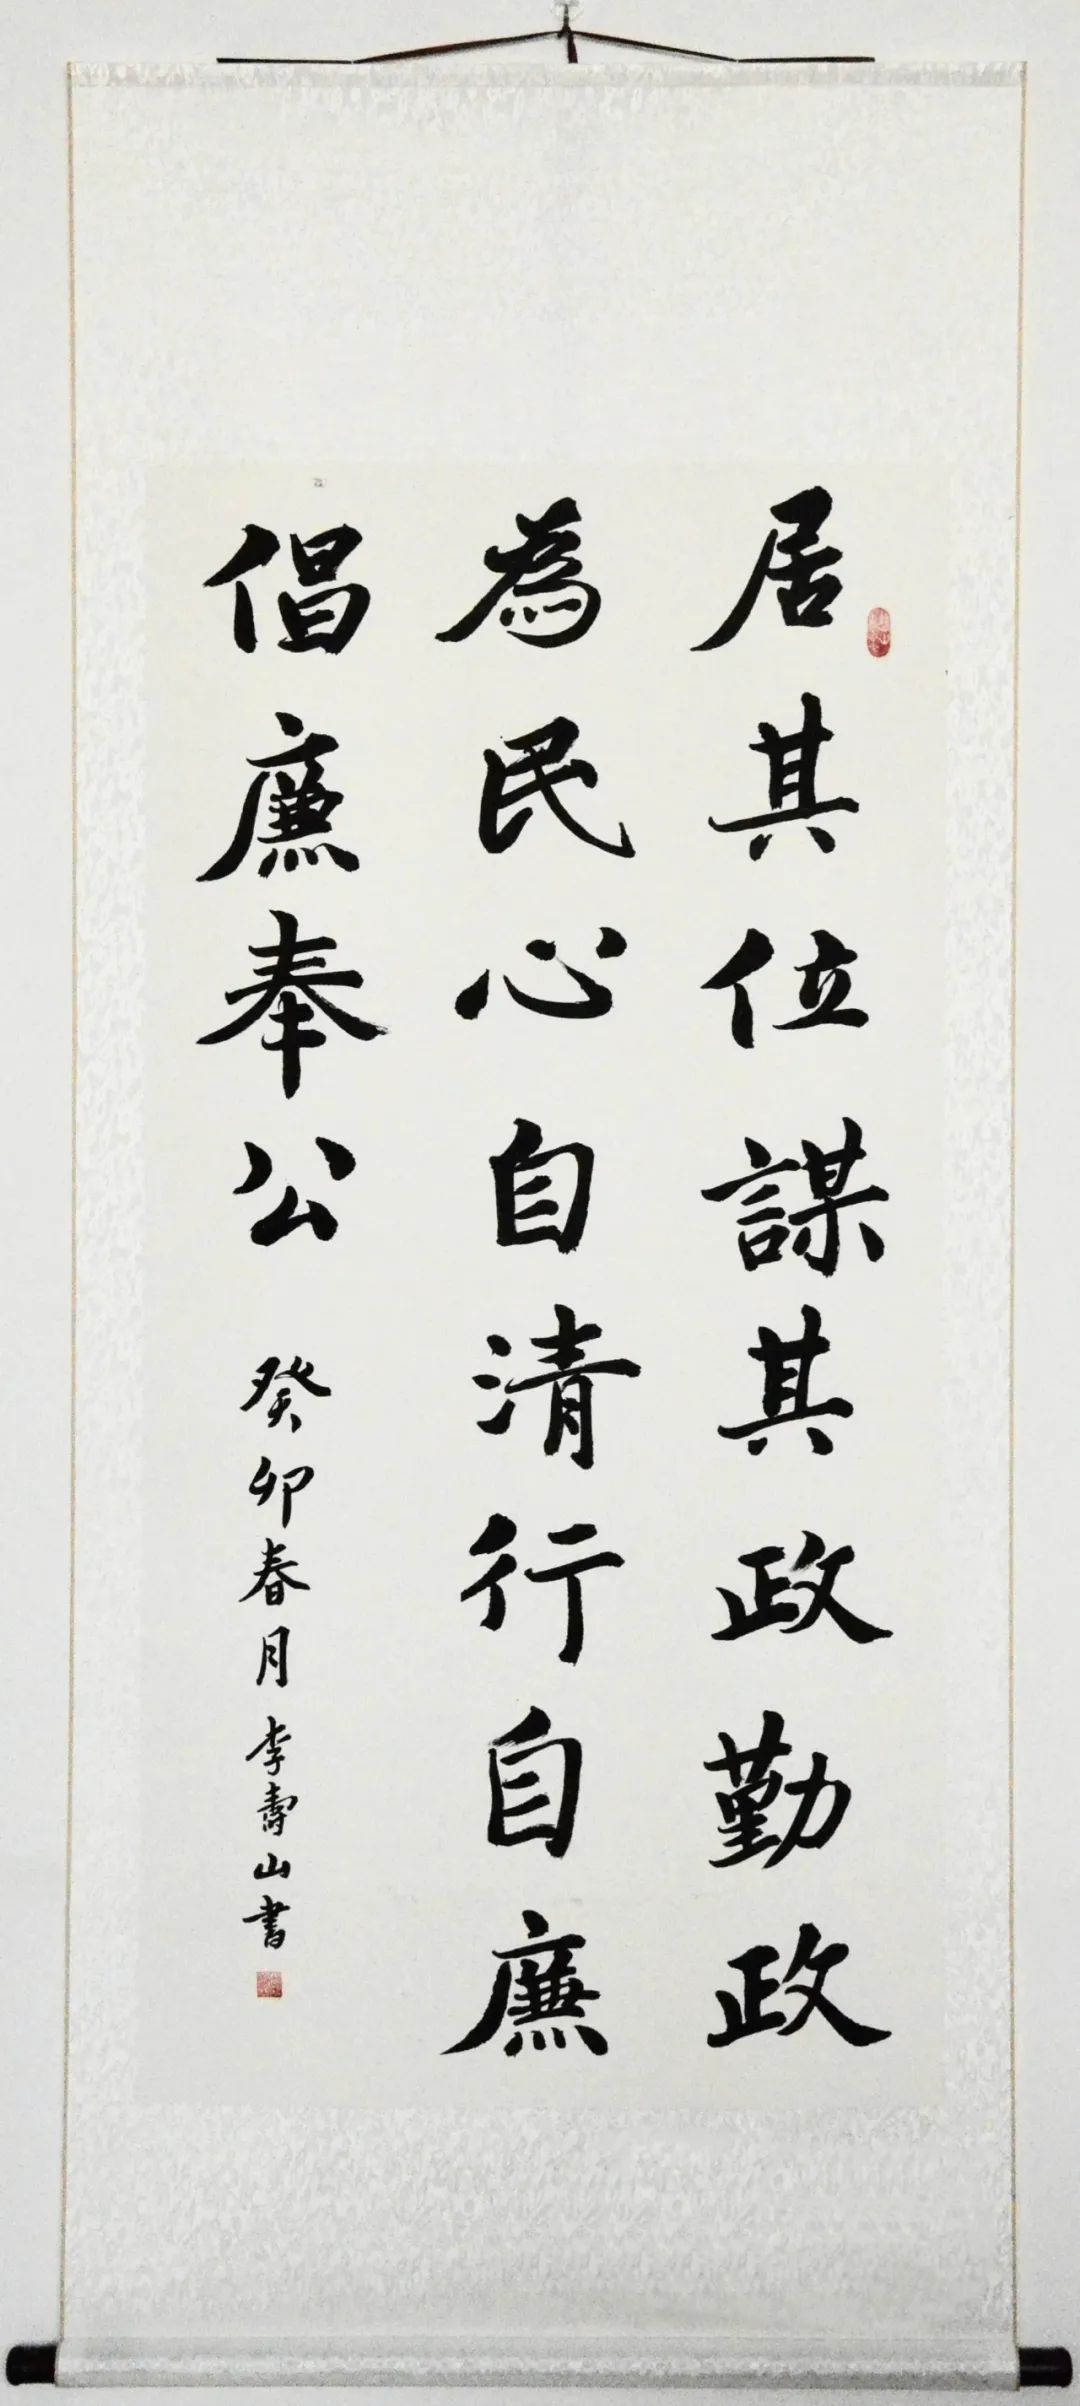 居其位謀其政勤政
為民心自清行自廉
倡廉奉公
癸卯春月李壽山書